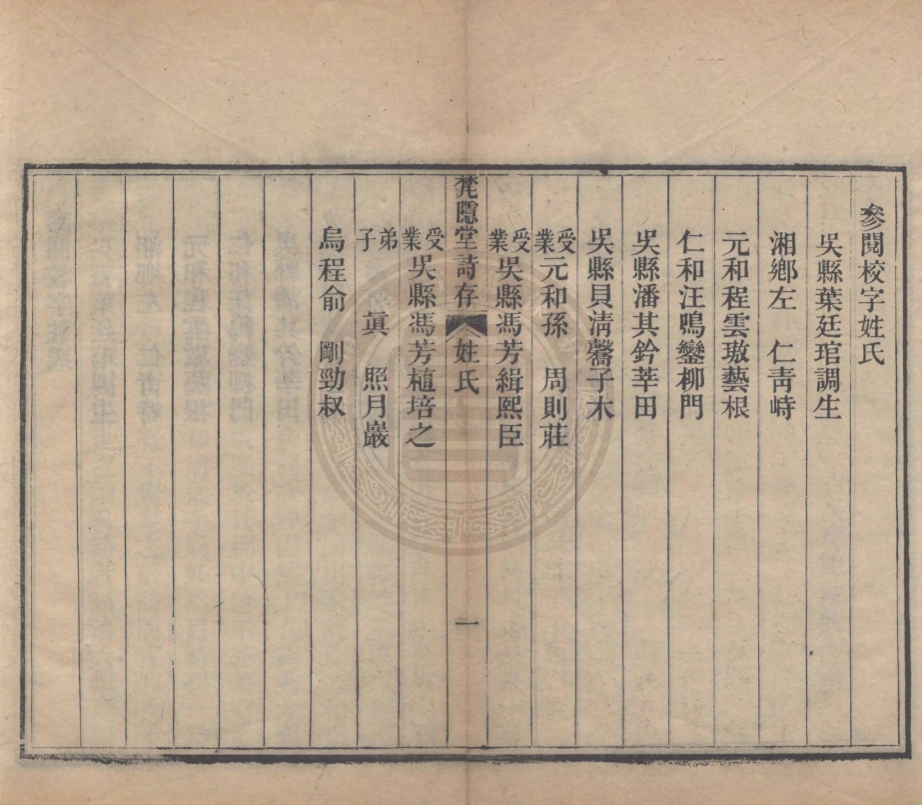 參閱校字姓氏
吳縣葉廷琯調生
湘鄉左　仁青峙
元和程雲璈藝根
仁和汪鳴鑾柳門
吳縣潘其鈐莘田
吳縣貝淸馨子木
受業元和孫　周則莊
受業吳縣馮芳緝熙臣
梵隱堂詩存　姓氏　一
受業吳縣馮芳植培之
弟子　眞　照月巖
烏程俞　剛勁叔